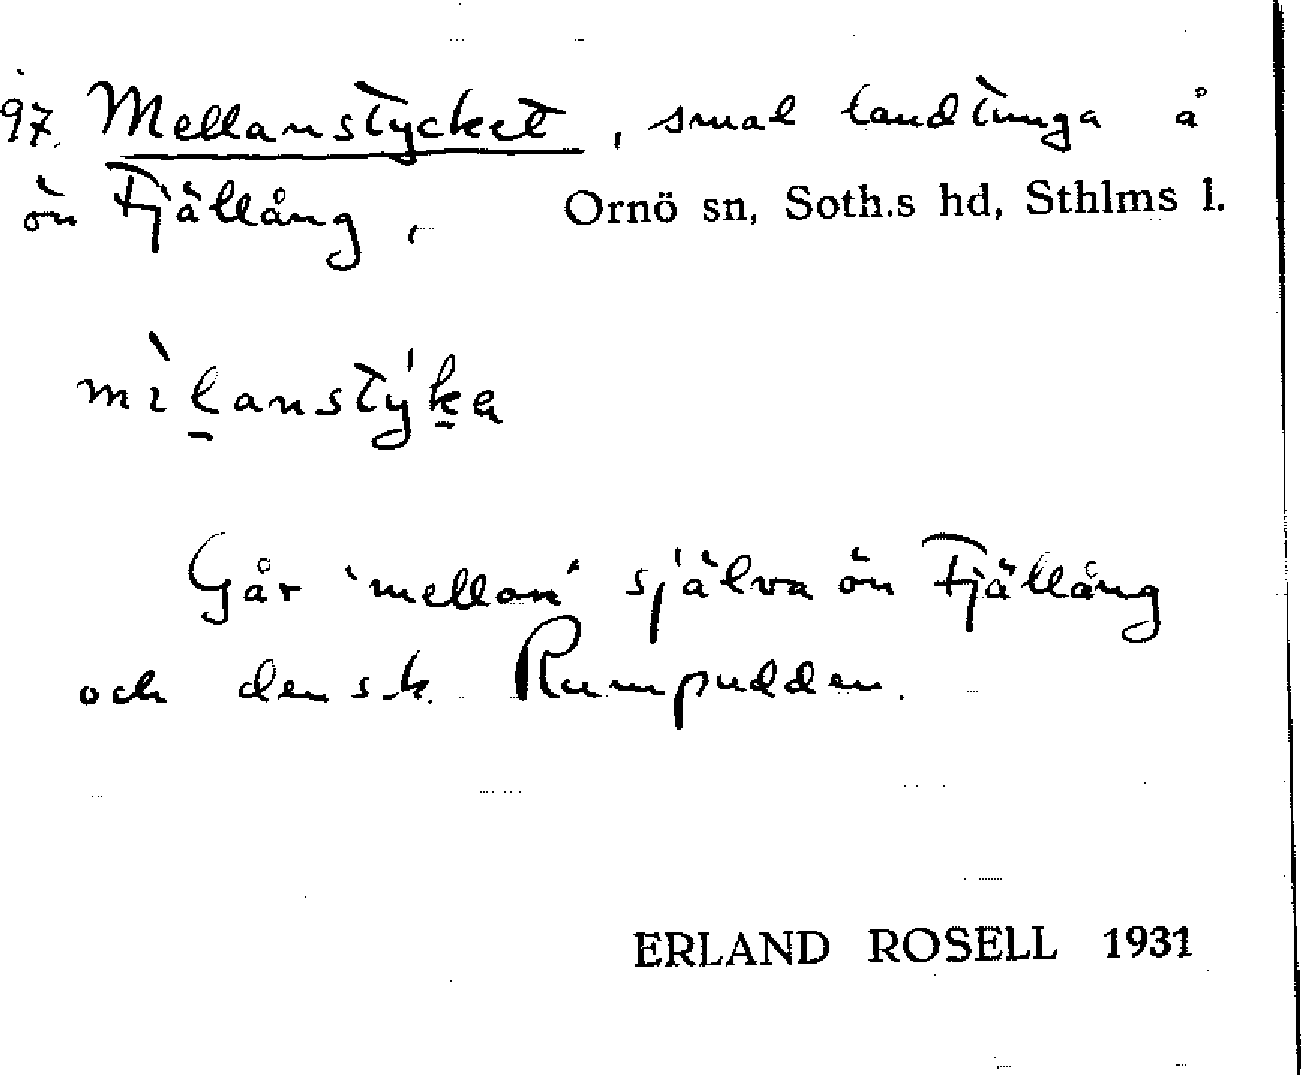 97. Mellanstycket, smal landtunga å
ön Fjällång, Ornö sn, Soth.s hd, Sthlms l.
mìlanstýka
Går 'mellan' själva ön Fjällång
och den s.k. Rumpudden.
ERLAND ROSELL 1931